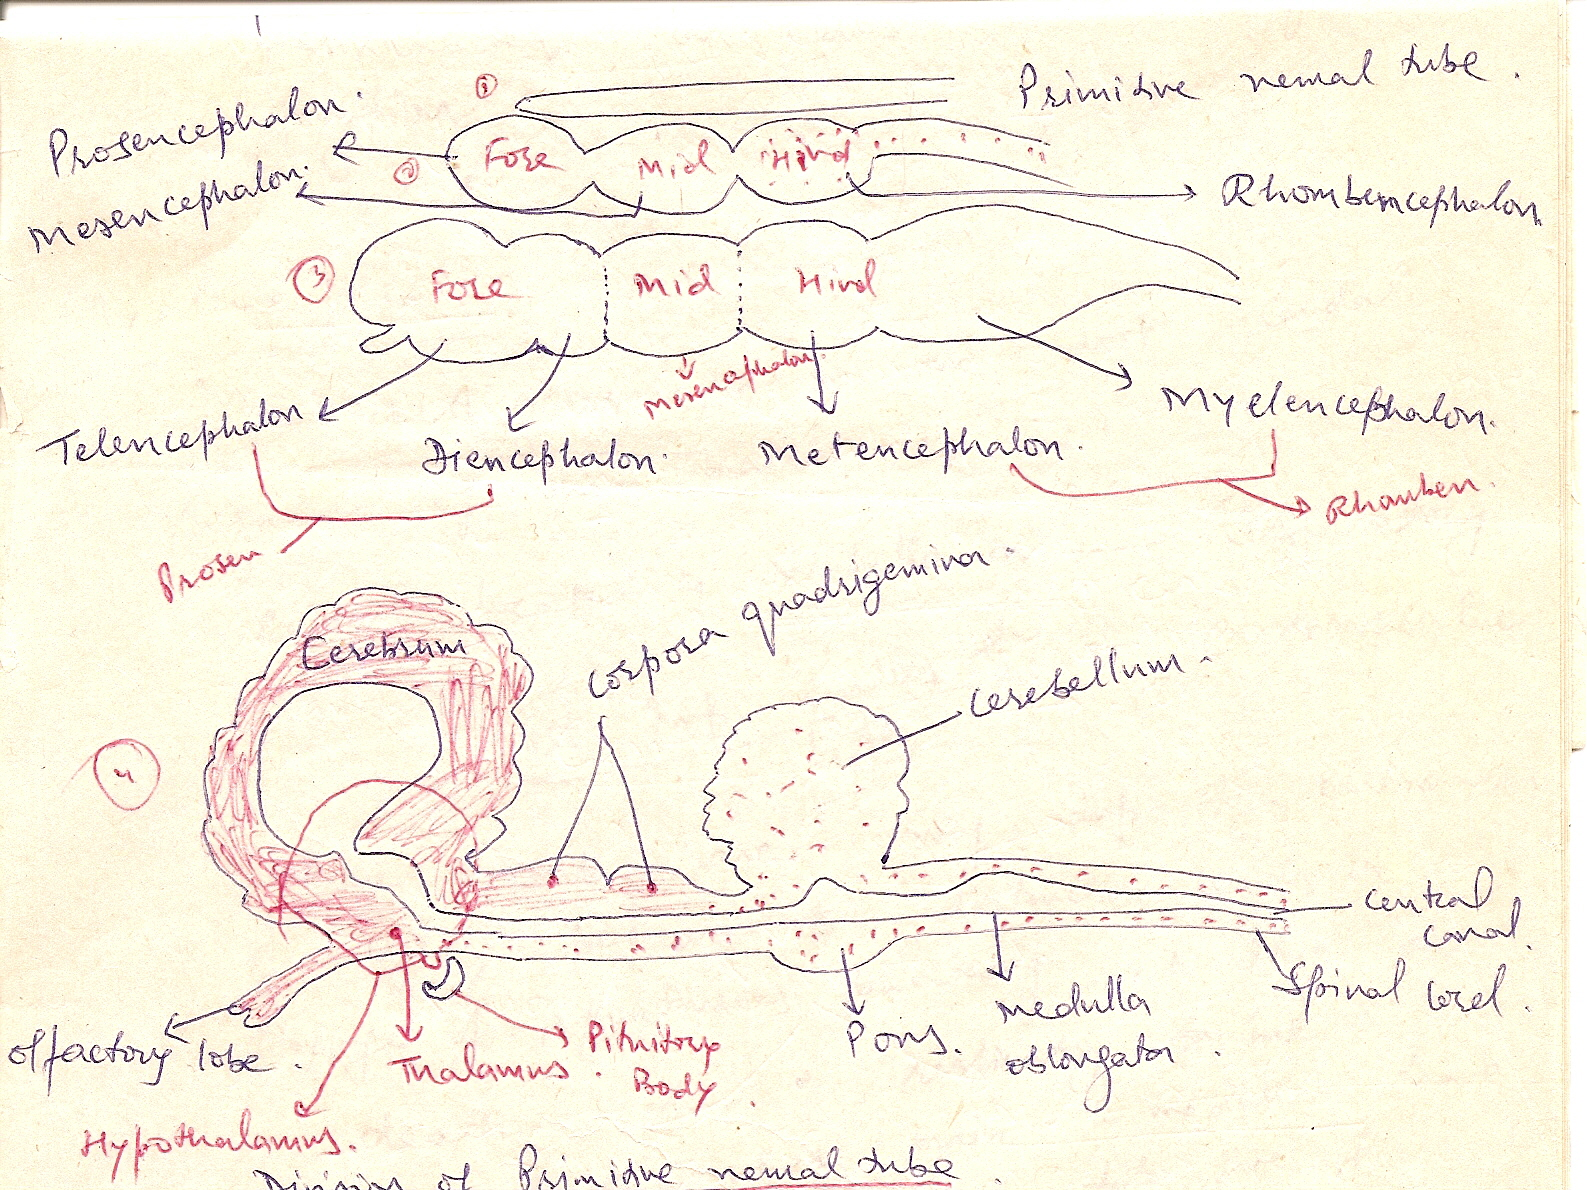 1
Primitive neural tube.
Prosencephalon.
2
Fore
Mid
Hind
Mesencephalon.
Rhombencephalon
3
Fore
Mid
Hind
Mesencephalon
Telencephalon
Diencephalon.
Metencephalon.
Myelencephalon.
Prosen
Rhomben.
Corpora quadrigemina.
Cerebrum
Cerebellum.
4
Central
Canal.
Spinal Cord.
Olfactory lobe.
Thalamus.
Pituitary
Body.
Pons.
Medulla
oblongata.
Hypothalamus.
Division of Primitive neural tube.